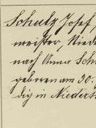 Schulz Josef,
meister, Niede
nach Anna Sch
geboren am 30.
dig in Niederh